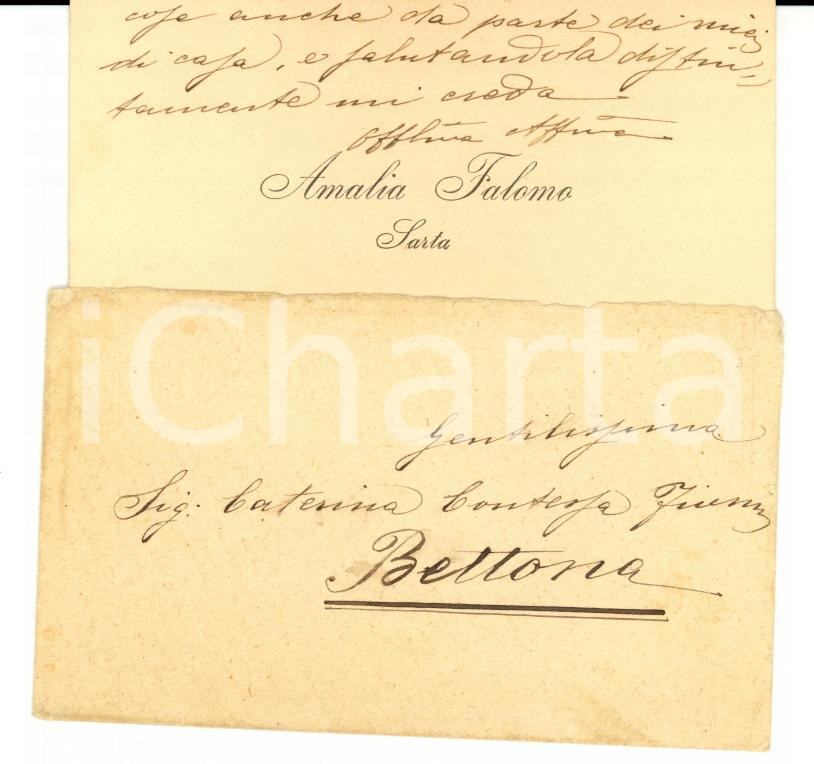 cose anche da parte dei miei
di casa, e salutandola distin-
tamente mi creda
Obblma Affma
Amalia Falomo
Sarta
iCharta
Gentilissima
Sig: Caterina Contessa
Bettona